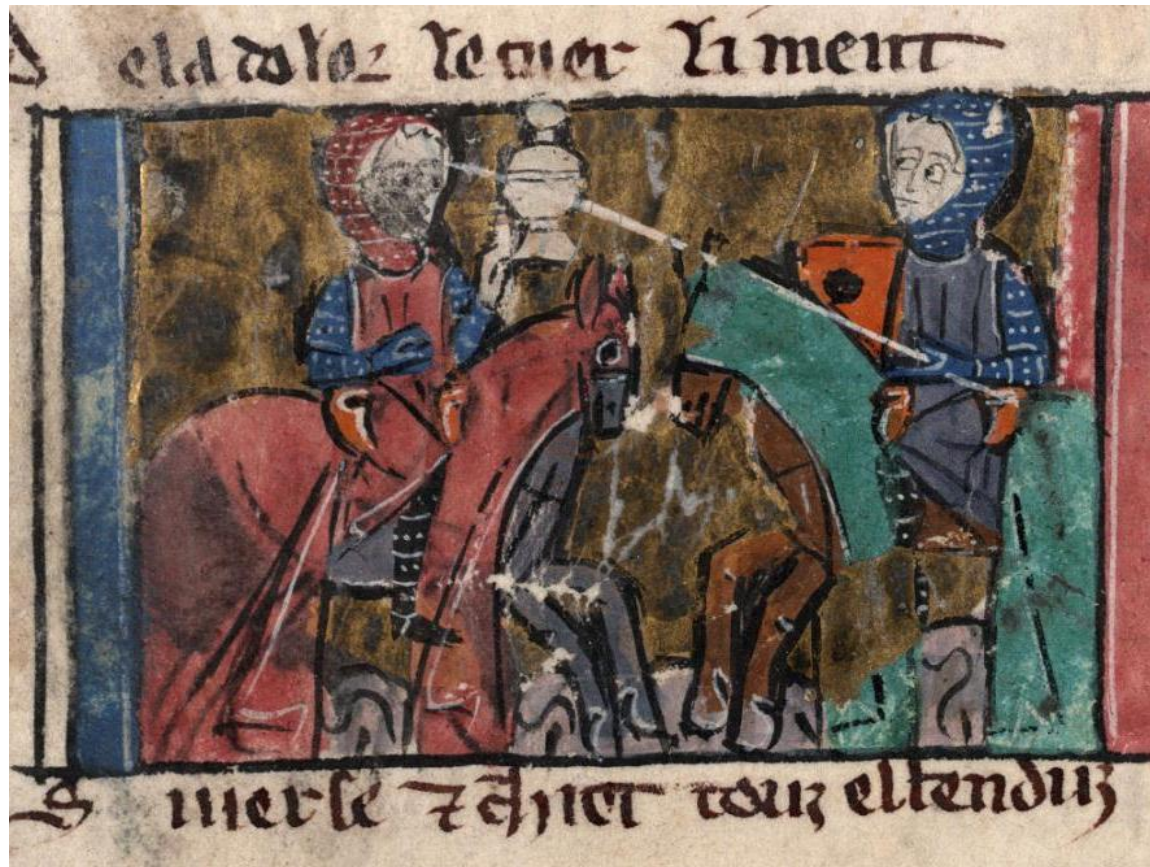 De la dolor le cuer li ment
Si uerse ⁊ chiet touz estenduz